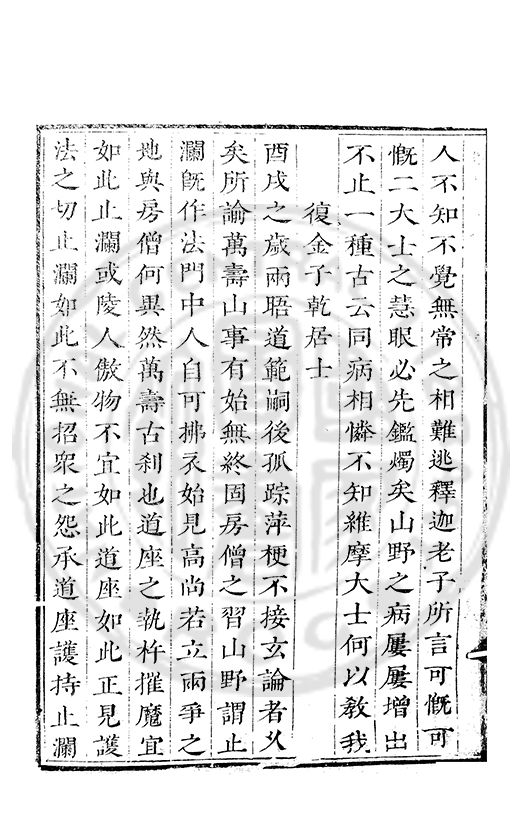 人不知不覺無常之相難逃釋迦老子所言可慨可
慨二大士之慧眼必先鑑燭矣山野之病屢屢增出
不止一種古云同病相憐不知維摩大士何以教我
復金子乾居士
酉戌之歲兩晤道範嗣後孤踪萍梗不接玄論者久
矣所諭萬壽山事有始無終固房僧之習山野謂止
瀾旣作法門中人自可拂衣始見高尚若立兩爭之
地與房僧何異然萬壽古刹也道座之執杵摧魔宜
如此止瀾或陵人傲物不宜如此道座如此正見護
法之切止瀾如此不無招眾之怨承道座護持止瀾